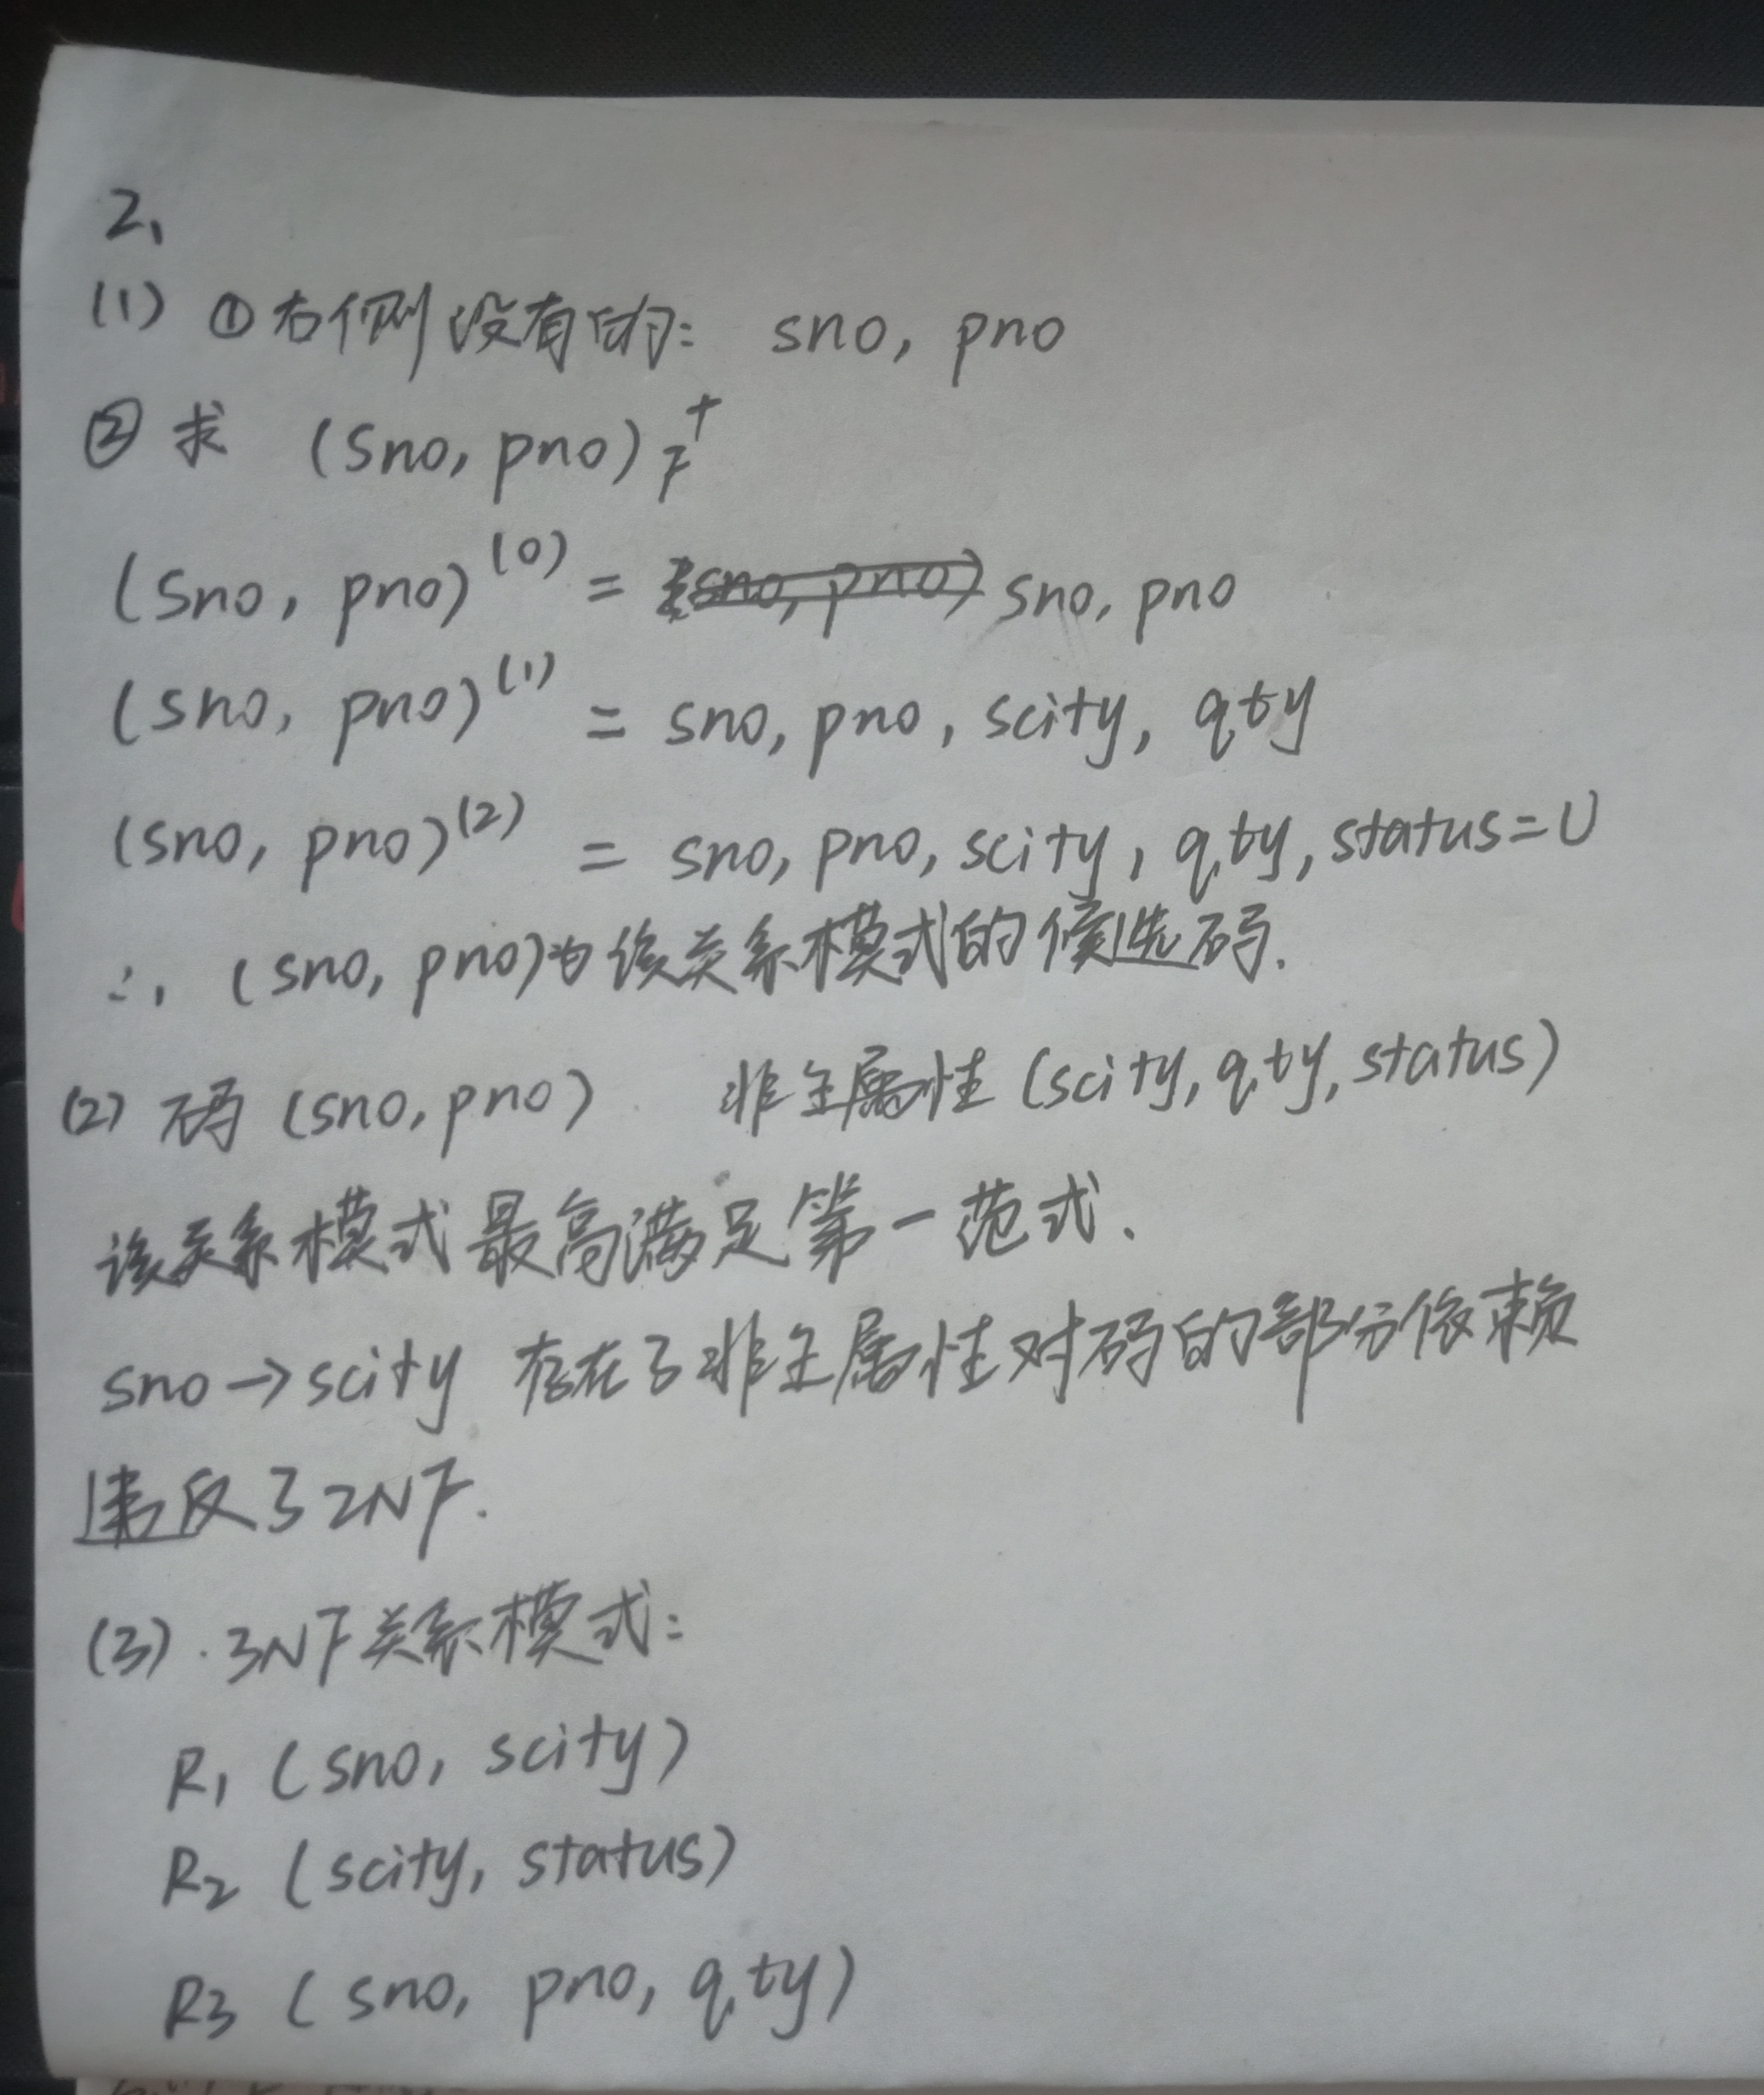 2、
(1) ①右侧没有的: sno, pno
② 求 (sno, pno)F+
(sno, pno)(0) = sno, pno
(sno, pno)(1) = sno, pno, scity, qty
(sno, pno)(2) = sno, pno, scity, qty, status=U
∴, (sno, pno)为该关系模式的候选码.
(2) 码 (sno, pno) 非主属性 (scity, qty, status)
该关系模式最高满足第一范式.
sno→scity 存在了非主属性对码的部分依赖
违反了2NF.
(3). 3NF关系模式:
R1 (sno, scity)
R2 (scity, status)
R3 (sno, pno, qty)